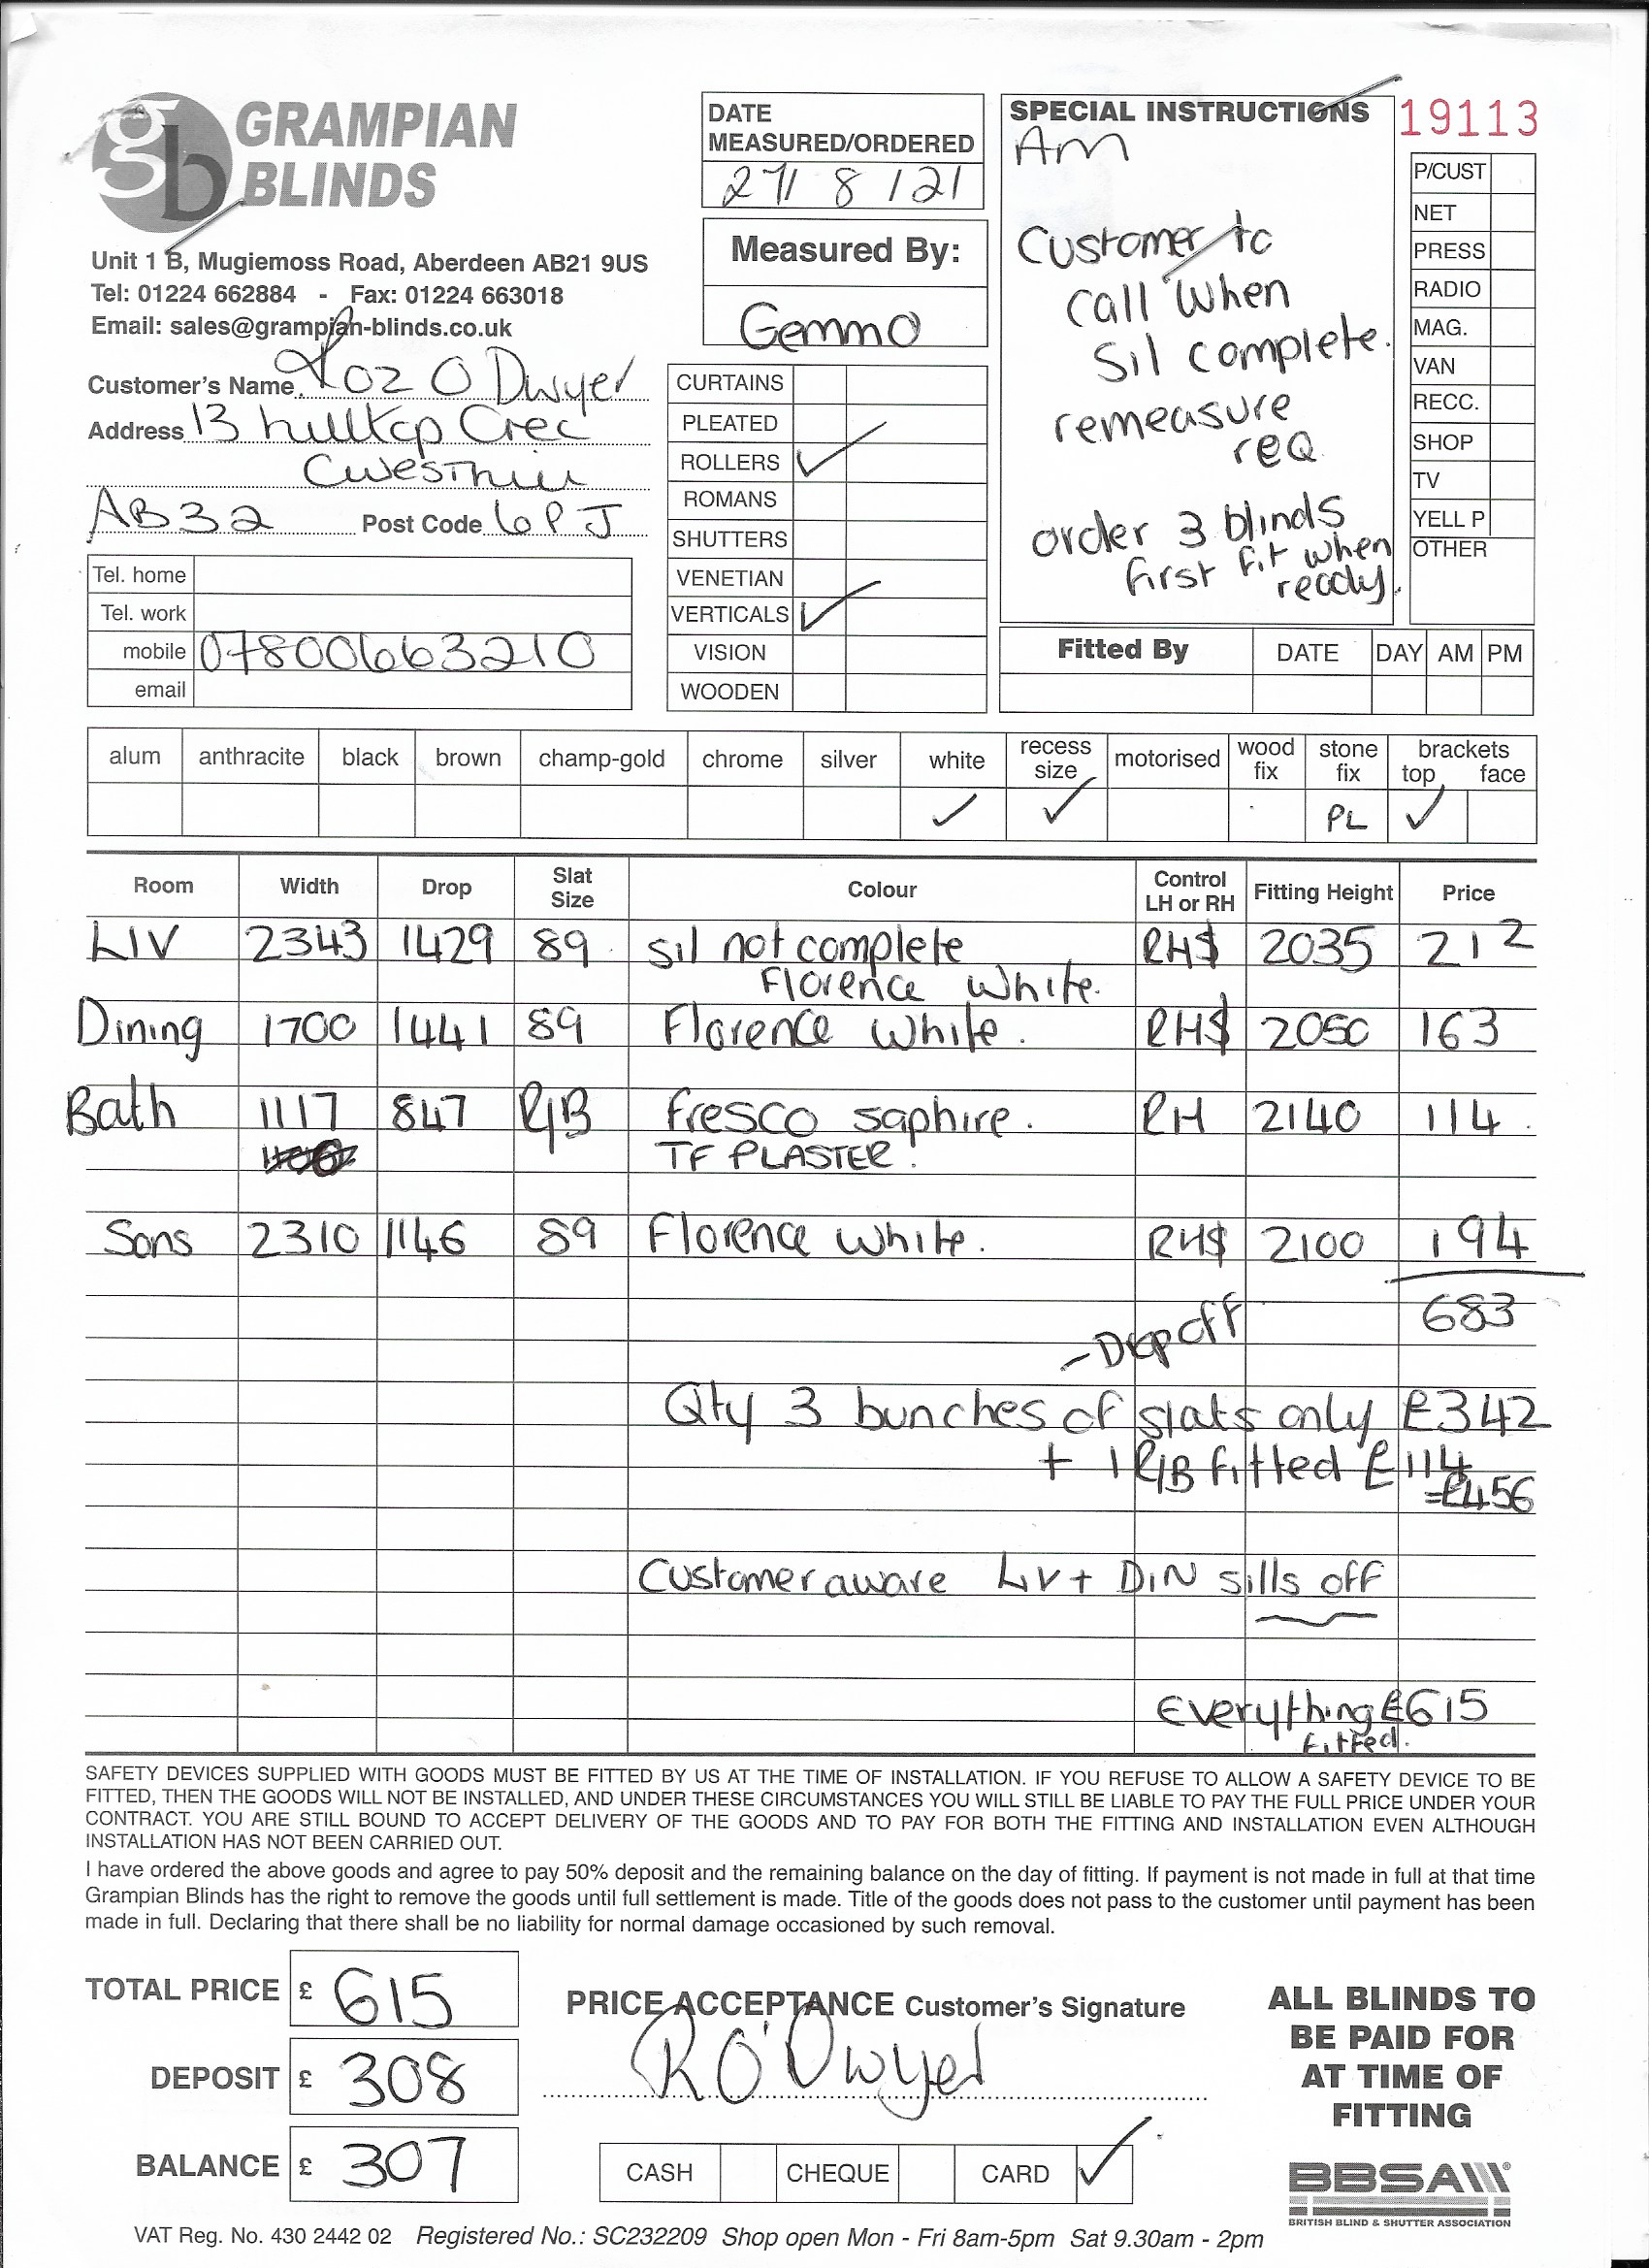 GRAMPIAN
BLINDS
Unit 1 B, Mugiemoss Road, Aberdeen AB21 9US
Tel: 01224 662884 - Fax: 01224 663018
Email: sales@grampian-blinds.co.uk
Customer's Name Roz O Dwyer
Address 13 hilltop Cres
Cwesthill
AB32 Post Code 6PJ
Tel. home
Tel. work
mobile 07800663210
email
DATE
MEASURED/ORDERED
27/8/21
Measured By:
Gemma
CURTAINS
PLEATED
ROLLERS ✓
ROMANS
SHUTTERS
VENETIAN
VERTICALS ✓
VISION
WOODEN
SPECIAL INSTRUCTIONS
Am
Customer to
call when
sil complete.
remeasure
req
order 3 blinds
first fit when
ready.
19113
P/CUST
NET
PRESS
RADIO
MAG.
VAN
RECC.
SHOP
TV
YELL P
OTHER
Fitted By DATE DAY AM PM
alum anthracite black brown champ-gold chrome silver white recess size motorised wood fix stone fix brackets top face
✓ ✓ PL ✓
Room Width Drop Slat Size Colour Control LH or RH Fitting Height Price
LIV 2343 1429 89 sil not complete RH$ 2035 212
Florence White.
Dining 1700 1441 89 Florence White. RH$ 2050 163
Bath 1117 847 R/B fresco saphire. RH 2140 114.
TF PLASTER!
Sons 2310 1146 89 Florence White. RH$ 2100 194
683
- Drop off
Qty 3 bunches of slats only £342
+ 1 R/B fitted £114
=£456
Customer aware LIV + DIN sills off
Everything £615
fitted.
SAFETY DEVICES SUPPLIED WITH GOODS MUST BE FITTED BY US AT THE TIME OF INSTALLATION. IF YOU REFUSE TO ALLOW A SAFETY DEVICE TO BE
FITTED, THEN THE GOODS WILL NOT BE INSTALLED, AND UNDER THESE CIRCUMSTANCES YOU WILL STILL BE LIABLE TO PAY THE FULL PRICE UNDER YOUR
CONTRACT. YOU ARE STILL BOUND TO ACCEPT DELIVERY OF THE GOODS AND TO PAY FOR BOTH THE FITTING AND INSTALLATION EVEN ALTHOUGH
INSTALLATION HAS NOT BEEN CARRIED OUT.
I have ordered the above goods and agree to pay 50% deposit and the remaining balance on the day of fitting. If payment is not made in full at that time
Grampian Blinds has the right to remove the goods until full settlement is made. Title of the goods does not pass to the customer until payment has been
made in full. Declaring that there shall be no liability for normal damage occasioned by such removal.
TOTAL PRICE £ 615
DEPOSIT £ 308
BALANCE £ 307
PRICE ACCEPTANCE Customer's Signature
R O'Dwyer
CASH CHEQUE CARD ✓
ALL BLINDS TO
BE PAID FOR
AT TIME OF
FITTING
BBSA
BRITISH BLIND & SHUTTER ASSOCIATION
VAT Reg. No. 430 2442 02 Registered No.: SC232209 Shop open Mon - Fri 8am-5pm Sat 9.30am - 2pm